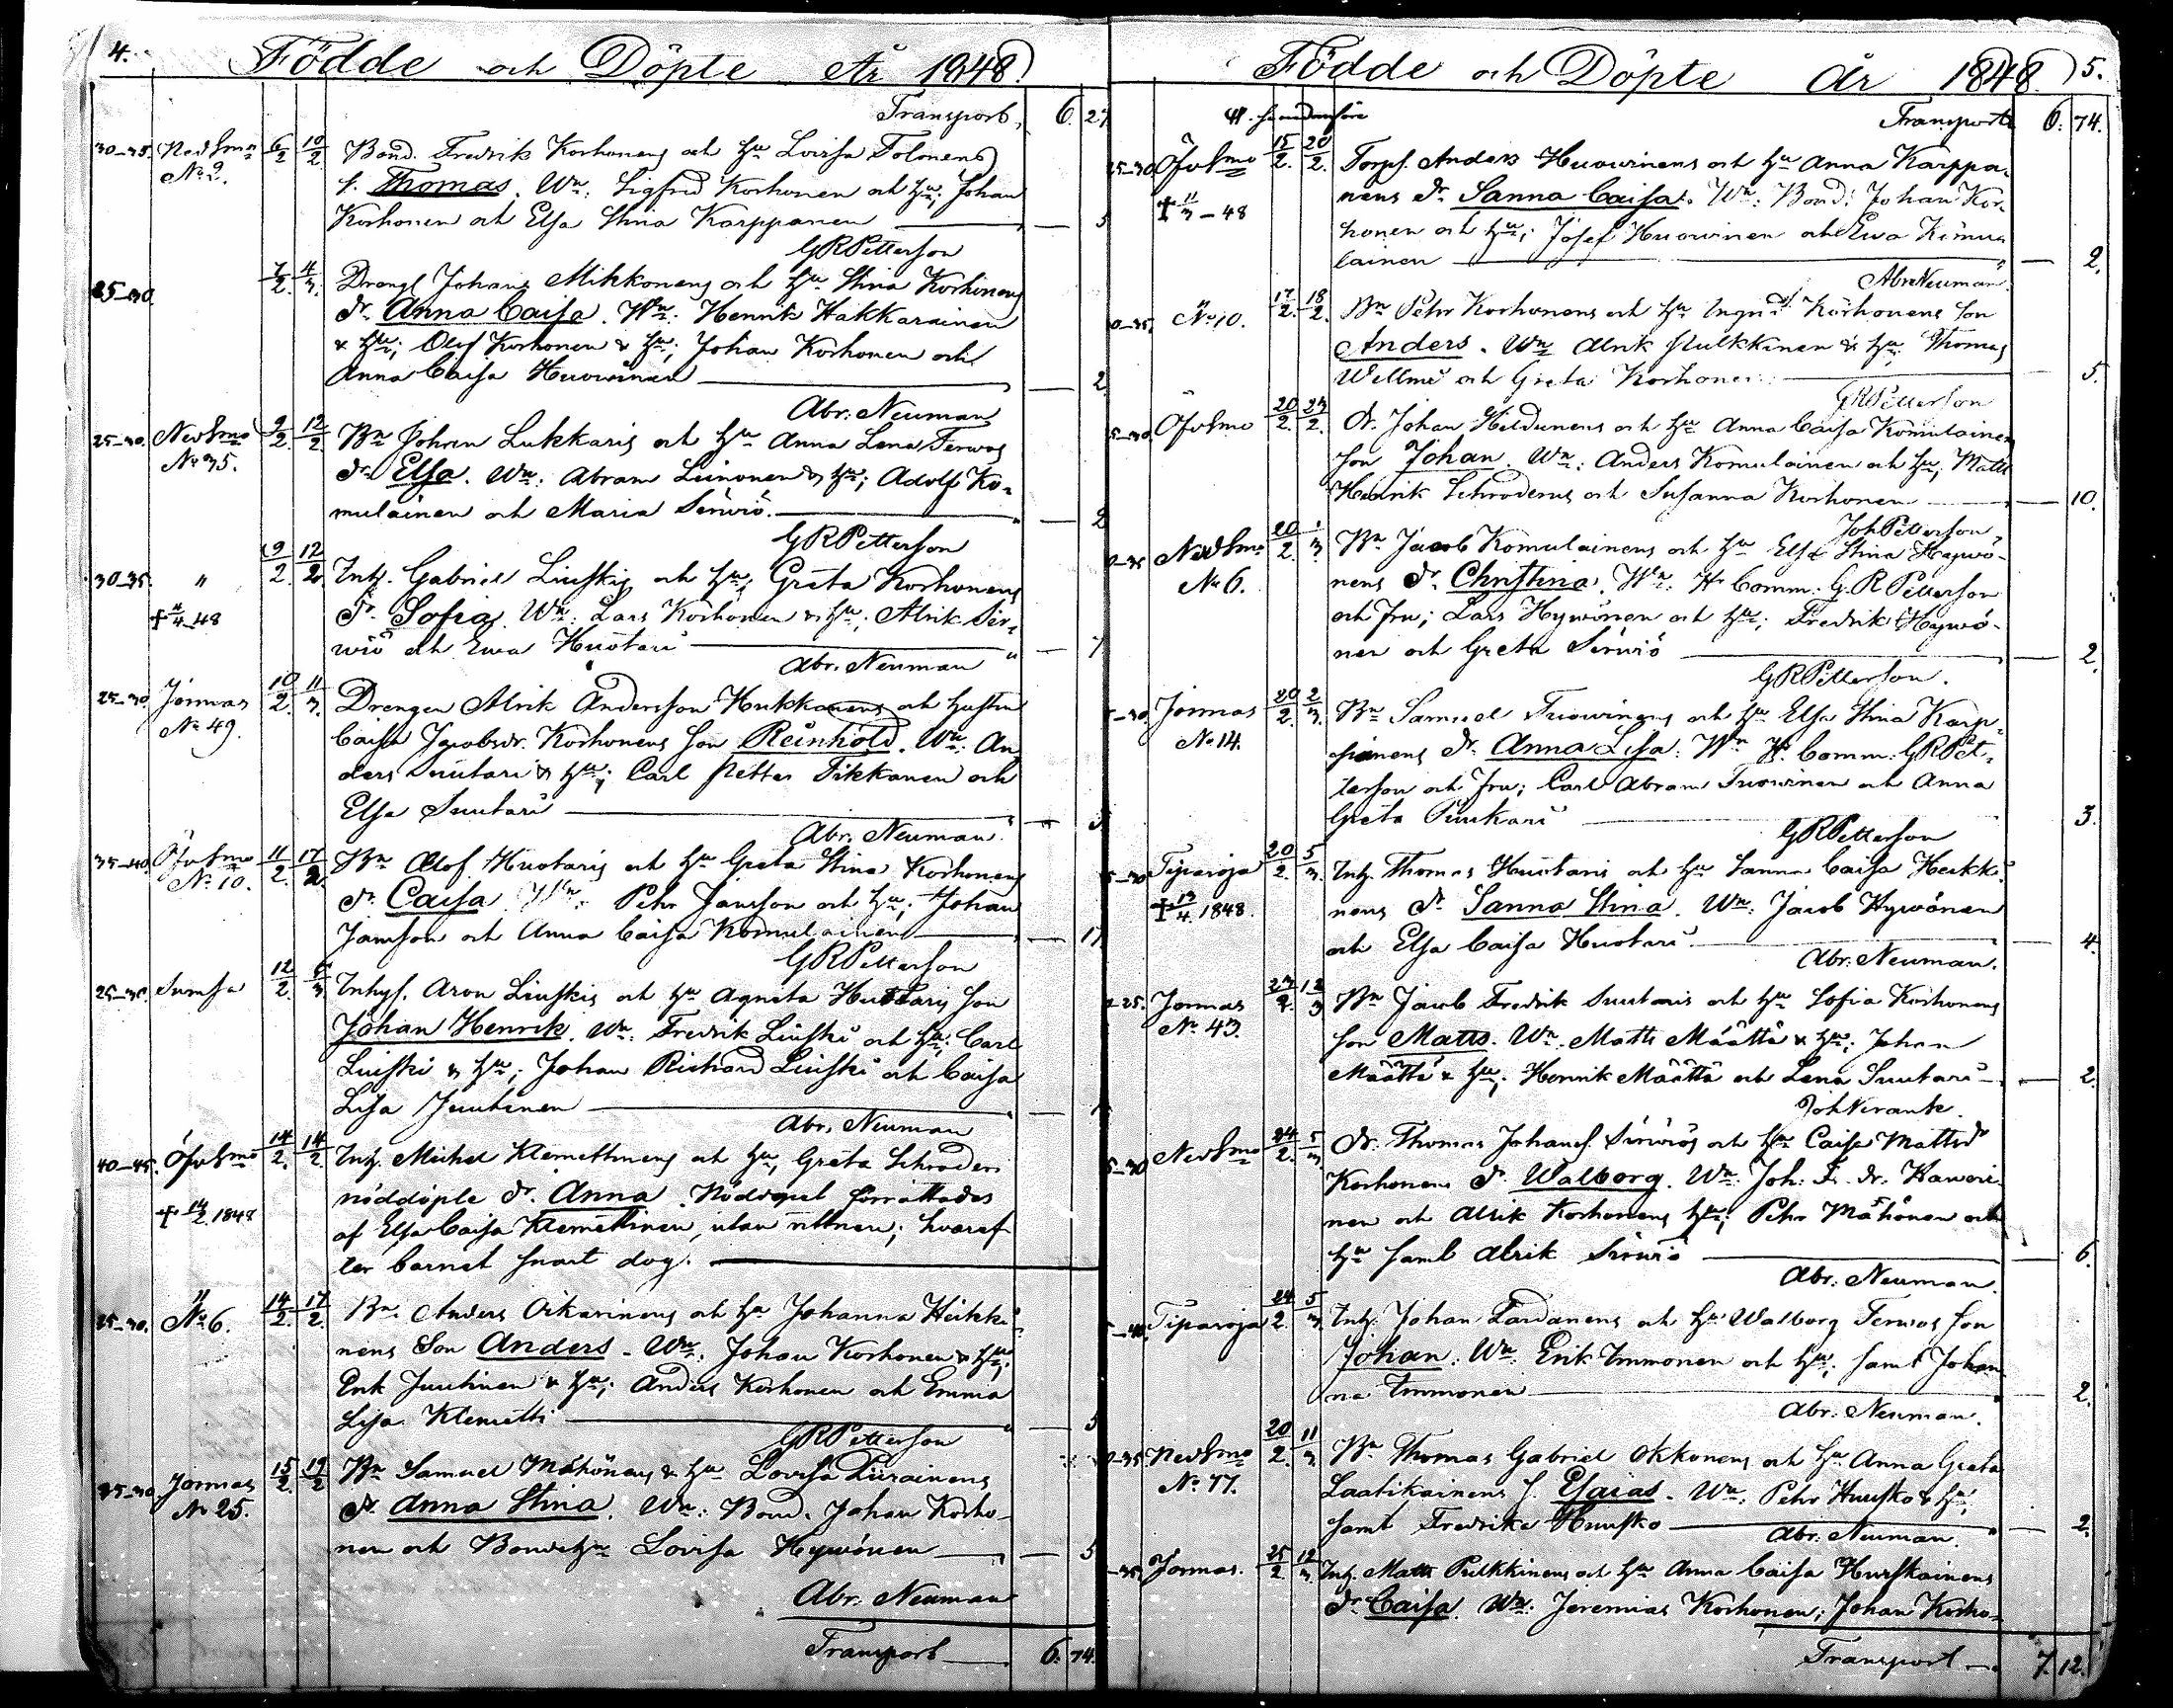 4. Födde och Döpte År 1848.
Transport, 6. 27
30-35. Nedsmo 6/2 10/2 Bond. Fredrik Korhonens och hu Lovisa Tolonens
No 2. s. Thomas. Wn: Sigfrid Korhonen och hu; Johan
Korhonen och Elsa Stina Karppanen — 5
GRPetterson
25-30 7/2. 4/3. Drengs Johans Mikkonens och hu Stina Korhonens
dr. Anna Caisa. Wn: Henrik Hakkarainen
& hu; Olof Korhonen & hu; Johan Korhonen och
Anna Caisa Huovinen — 2
Abr. Neuman
25-30. Nedsmo 9/2. 12/2. Bn Johan Lukkaris och hu Anna Lena Terwos
No 35. dr Elsa. Wn: Abram Leinonen & hu; Adolf Ko-
mulainen och Maria Sirwiö. — 2
GRPetterson
30-35. " 9/2. 12/2. Inhs. Gabriel Liuskis och hu; Greta Korhonens
+ 4/4 48 dr. Sofia. Wn: Lars Korhonen & hu; Alrik Sir-
wiö och Ewa Huotari — 7
Abr. Neuman
25-30. Jormas 10/2. 11/3. Drengen Alrik Andersson Hukkanens och hustru
No 49. Caisa Jacobsdr. Korhonens son Reinhold. Wn: An
ders Suutari & hu; Carl Petter Tikkanen och
Elsa Suutari — 5
Abr. Neuman.
35-40. Öfvsmo 11/2. 17/2. Bn Olof Huotaris och hu Greta Stina Korhonens
No 10. dr. Caisa. Wn: Pehr Jansson och hu; Johan
Jansson och Anna Caisa Komulainen — 17
GRPetterson
25-30. Sumsa 12/2. 5/3 Inhys. Aron Liuskis och hu Agneta Huotaris son
Johan Henrik. Wn: Fredrik Liuski och hu; Carl
Liuski & hu; Johan Richard Liuski och Caisa
Lisa Juutinen —
Abr. Neuman
40-45. Öfvsmo 14/2. 14/2. Inh. Michel Klemettinens och hu, Greta Schroderi
nöddöpte dr. Anna. Nöddopet förrättades
+ 14/2. 1848 af Elsa Caisa Klemettinen, utan vittnen; hvaref-
ter barnet snart dog.
25-30. " No 6. 14/2. 17/2. Bn. Anders Oikarinens och hu Johanna Heikki-
nens Son Anders. Wn: Johan Korhonen & hu;
Erik Juutinen & hu; Anders Korhonen och Emma
Lisa Klemetti — 5
GRPetterson
25-30 Jormas 15/2. 19/2 Bn Samuel Mähönens & hu Lovisa Piirainens
No 25. dr Anna Stina. Wn: Bond. Johan Korho-
nen och Bondehu Lovisa Hywönen — 5
Abr. Neuman
Transport — 6. 74.
Födde och Döpte År 1848. 5.
Transport 6. 74.
25-30 Öfvsmo 15/2. 20/2. Torps. Anders Huowinens och hu Anna Karppa-
+ 11/3 - 48 nens dr. Sanna Caisa. Wn: Bond: Johan Kor-
honen och hu; Josef Huowinen och Ewa Komu-
lainen — 2.
Abr. Neuman.
" No 10. 17/2. 18/2. Bn Pehr Korhonens och hu Ingrid Korhonens son
Anders. Wn Alrik Pulkkinen & hu; Thomas
Wellmei och Greta Korhonen — 5.
GRPetterson
Öfvsmo 20/2. 23/2. Dr. Johan Heldunens och hu Anna Caisa Komulainens
son Johan. Wn: Anders Komulainen och hu; Matts
Henrik Schroderus och Susanna Korhonen — 10.
Joh Petterson.
Nedsmo 20/2. 1/3 Bn Jacob Komulainens och hu Elsa Stina Hywö-
No 6. nens dr. Christina. Wn: Hr Comm: G. R Petterson
och fru; Lars Hywönen och hu; Fredrik Hywö-
nen och Greta Sirwiö — 2.
GRPetterson.
Jormas 20/2. 2/3. Bn Samuel Tuowinens och hu Elsa Stina Karp-
No 14. panens dr. Anna Lisa. Wn Hr. Comm: GRPet-
terson och fru; Carl Abram Tuowinen och Anna
Greta Puukari — 3.
GRPetterson
Tiparoja 20/2. 5/3. Inh. Thomas Huotaris och hu Sanna Caisa Heikki-
+ 13/4. 1848. nens dr. Sanna Stina. Wn: Jacob Hywönen
och Elsa Caisa Huotari — 4.
Abr. Neuman.
Jormas 23/2. 12/3 Bn Jacob Fredrik Suutaris och hu Sofia Korhonens
No 43. son Matts. Wn. Matts Määttä & hu; Johan
Määttä & hu; Henrik Määttä och Lena Suutari — 2.
Joh Wirank.
Nedsmo 24/2. 5/3. Dr. Thomas Johans. Sirwiös och hu Caisa Mattsdr
Korhonens dr Walborg. Wn: Joh: Fr. dr. Haweri-
nen och Alrik Korhonens hu; Pehr Mähönen och
hu samt Alrik Sirwiö — 6.
Abr. Neuman.
Tiparoja 24/2. 5/3. Inh. Johan Tardanens och hu Walborg Terwos son
Johan. Wn: Erik Immonen och hu; samt Johan-
na Immonen — 2.
Abr. Neuman.
Nedsmo 20/2. 11/3 Bn Thomas Gabriel Okkonens och hu Anna Greta
No 77. Laatikainens s. Esaias. Wn: Pehr Huusko & hu;
samt Fredrika Huusko — 2.
Abr. Neuman.
Jormas. 25/2. 12/3. Inh. Matts Pulkkinens och hu Anna Caisa Hurskainens
dr. Caisa. Wn: Jeremias Korhonen; Johan Korho-
Transport — 7. 12.